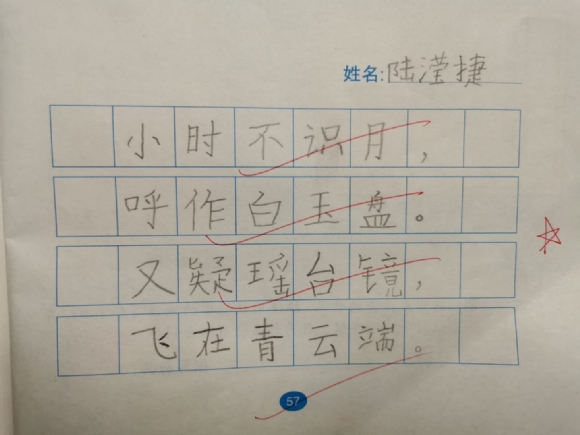 姓名:陆滢捷
小时不识月，
呼作白玉盘。
又疑瑶台镜，
飞在青云端。
57